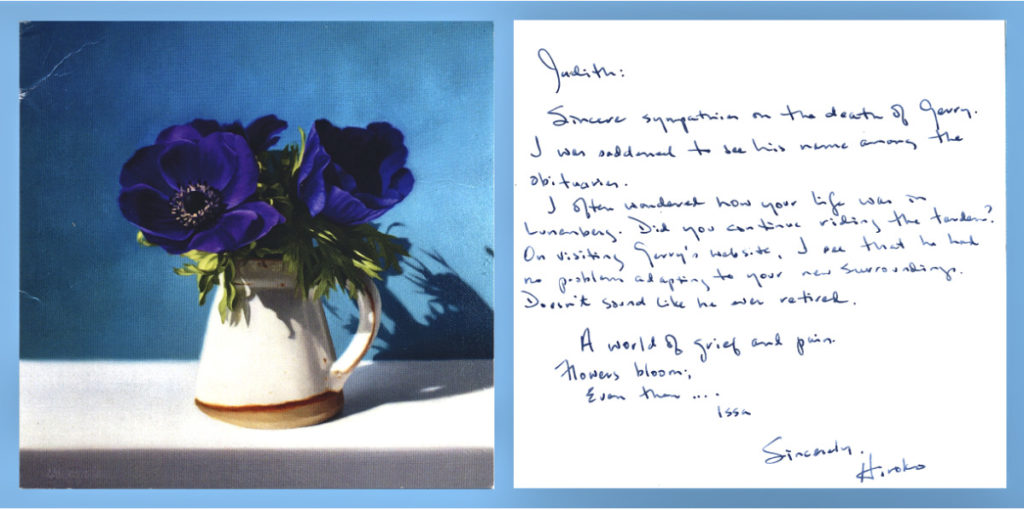 Judith:
Sincere sympathies on the death of Gerry.
I was saddened to see his name among the
obituaries.
I often wondered how your life was in
Lunenberg. Did you continue riding the tandem?
On visiting Gerry's website, I see that he had
no problem adapting to your new surroundings.
Doesn't sound like he ever retired.
A world of grief and pain.
Flowers bloom;
Even then ....
Issa
Sincerely,
Hiroko